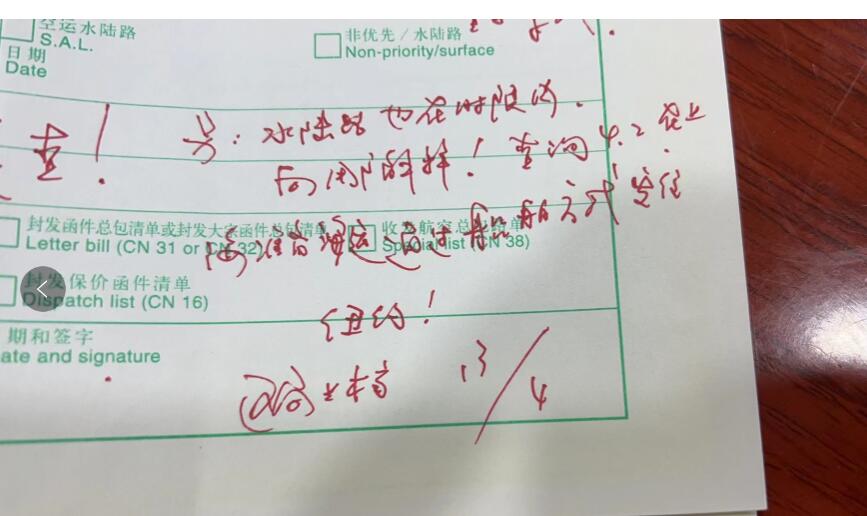 空运水陆路
S.A.L.
非优先/水陆路
Non-priority/surface
日期
Date
查! 另:水陆路也在时限内.
向用户解释! 查询4.2已
通过船舶方式发往
封发函件总包清单或封发大宗函件总包清单
Letter bill (CN 31 or CN 32)
收发航空总包清单
Special list (CN 38)
封发保价函件清单
Dispatch list (CN 16)
纽约!
期和签字
ate and signature
13/4